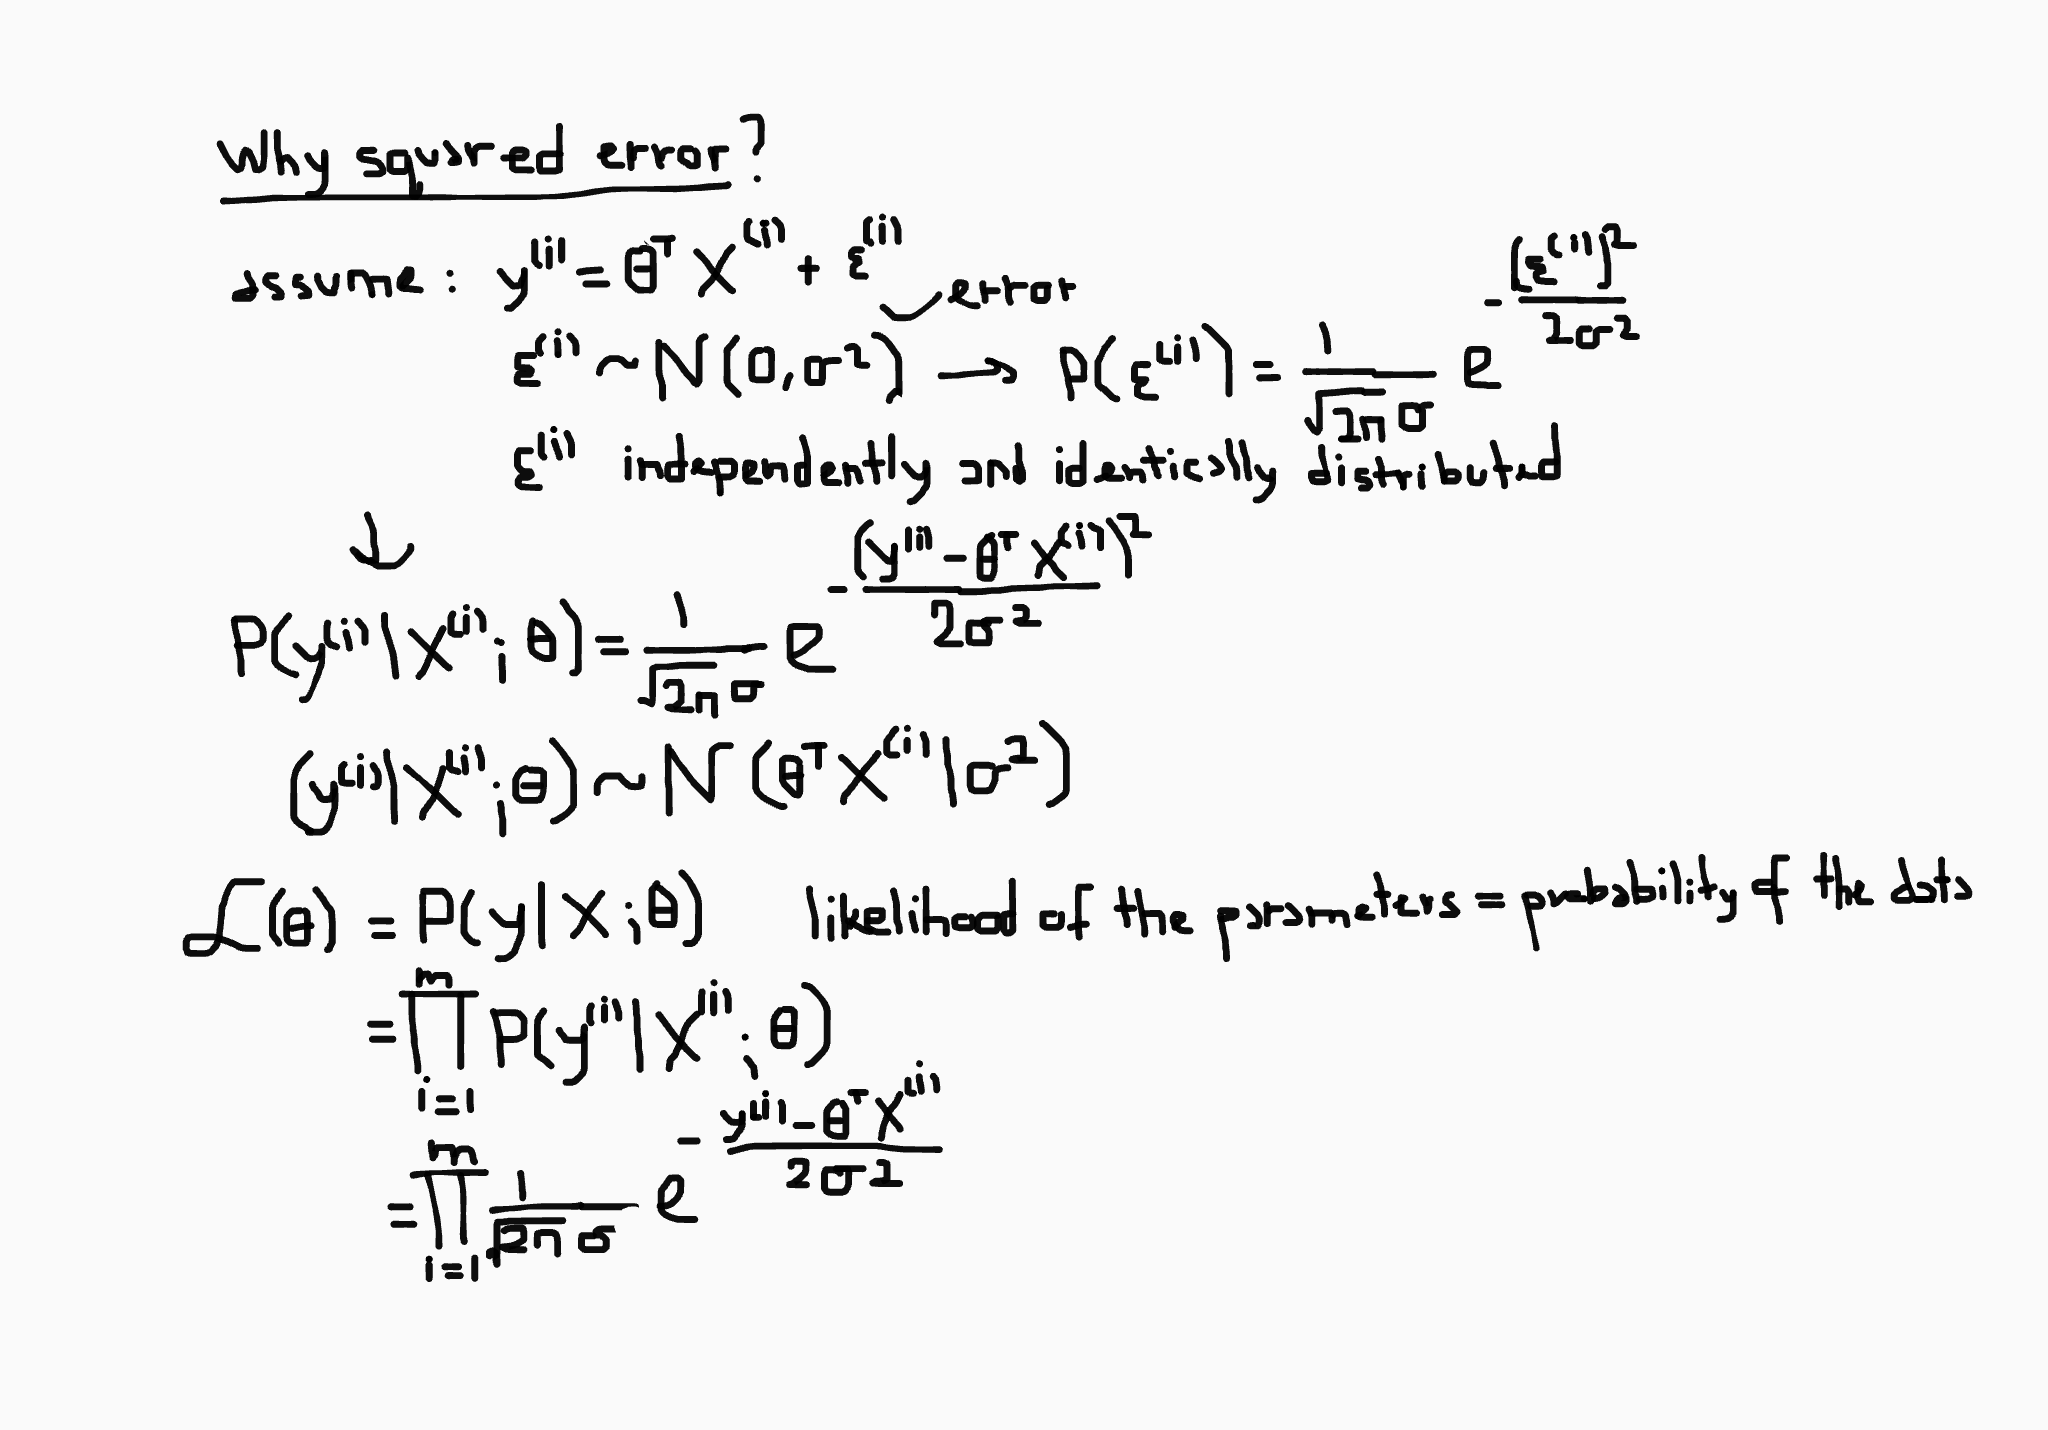 Why squared error?
assume: y^(i) = θ^T X^(i) + ε^(i)
error
ε^(i) ~ N(0, σ²) → P(ε^(i)) = 1/(√2π σ) e^(-(ε^(i))²/(2σ²))
ε^(i) independently and identically distributed
↓
P(y^(i) | X^(i); θ) = 1/(√2π σ) e^(-(y^(i) - θ^T X^(i))²/(2σ²))
(y^(i) | X^(i); θ) ~ N(θ^T X^(i) | σ²)
ℒ(θ) = P(y | X; θ) likelihood of the parameters = probability of the data
= ∏_{i=1}^{m} P(y^(i) | X^(i); θ)
= ∏_{i=1}^{m} 1/(√2π σ) e^(-(y^(i) - θ^T X^(i))/(2σ²))